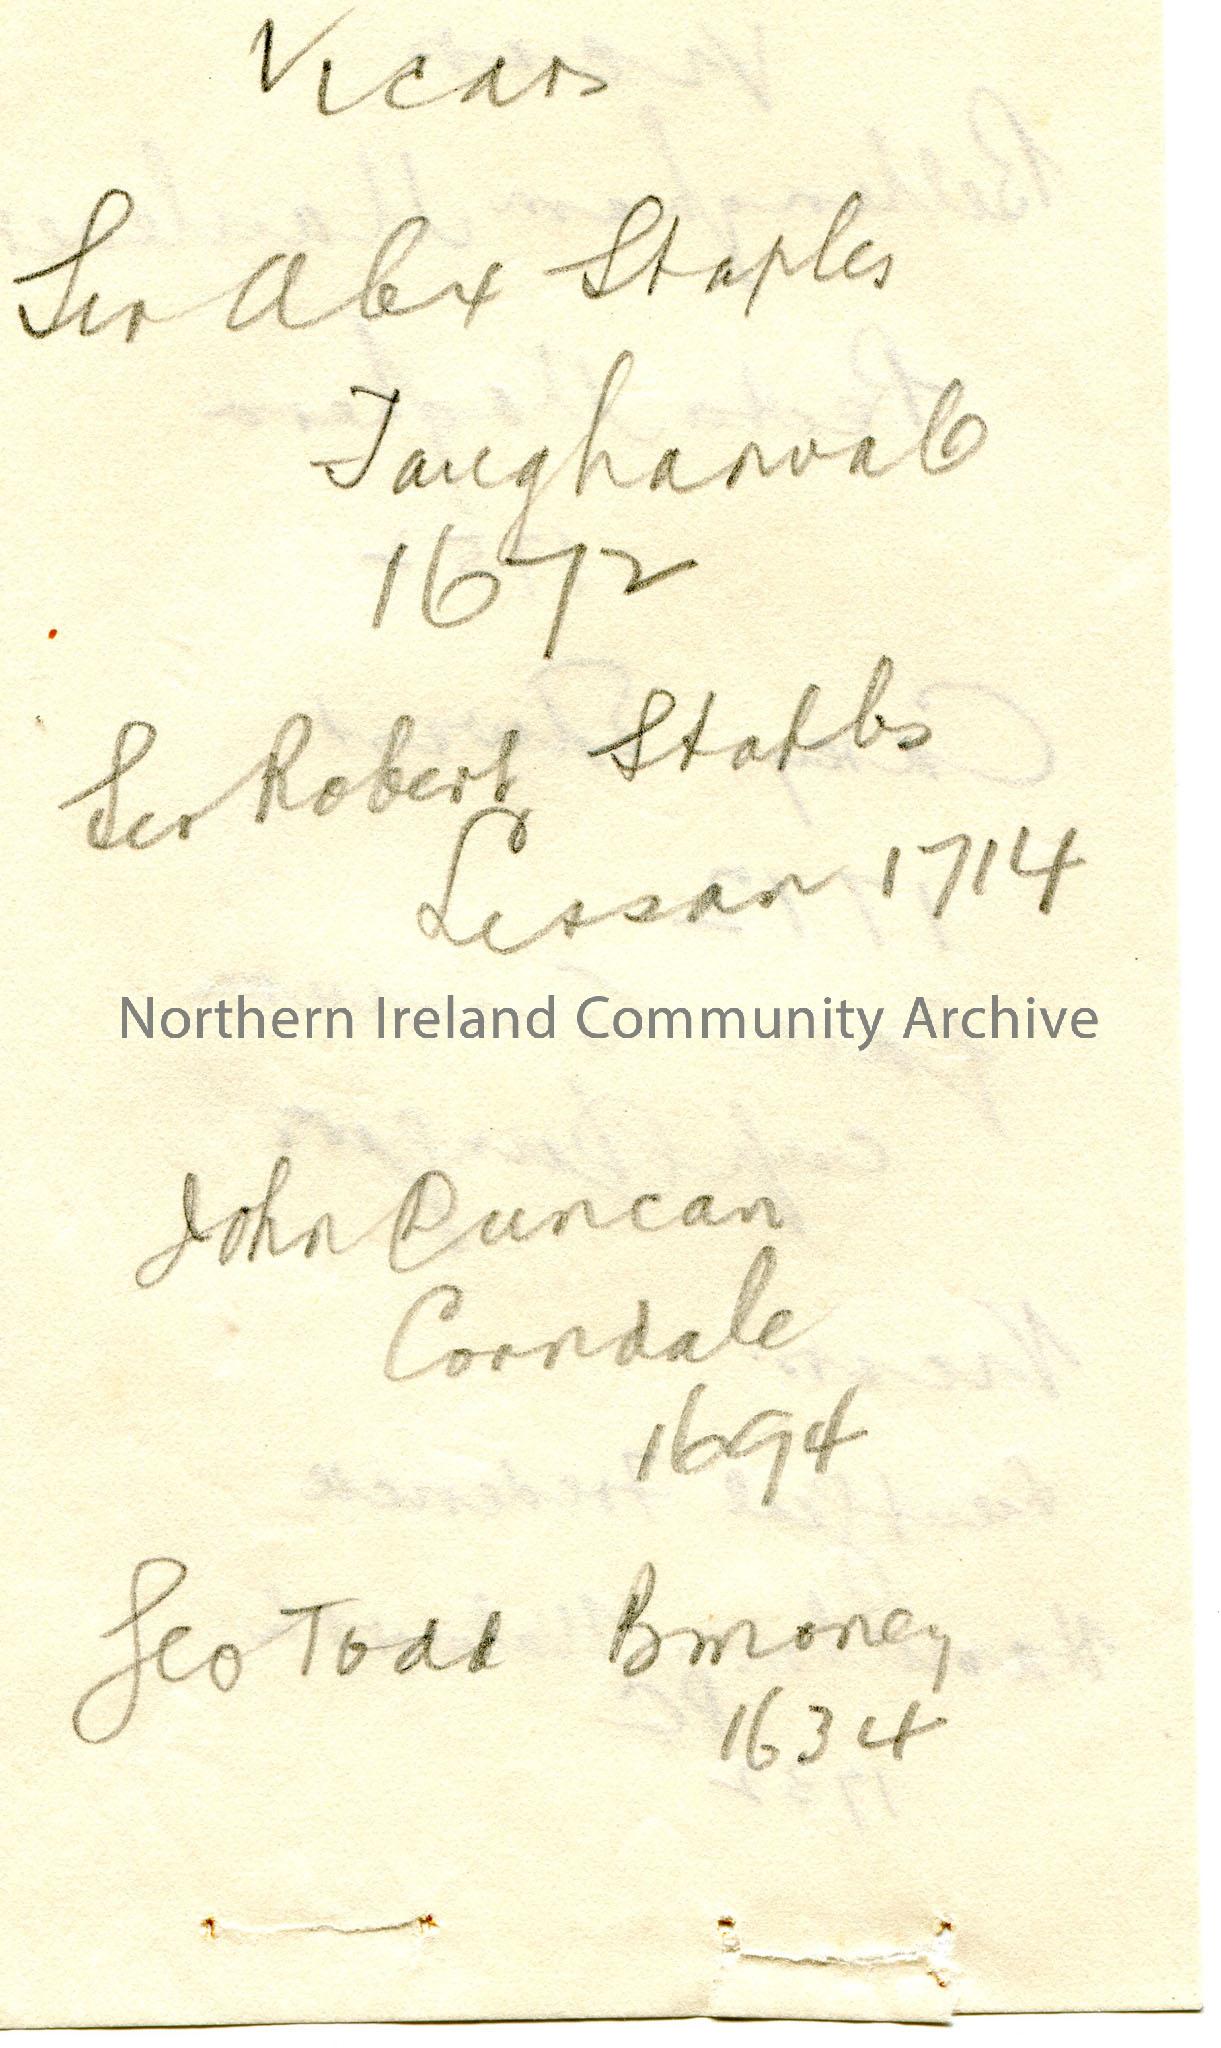 Vicars
Sir Alex Staples
Faughanvale
1672
Sir Robert Staples
Lissan 1714
Northern Ireland Community Archive
John Duncan
Corndale
1694
Geo Todd Bmoney
1634